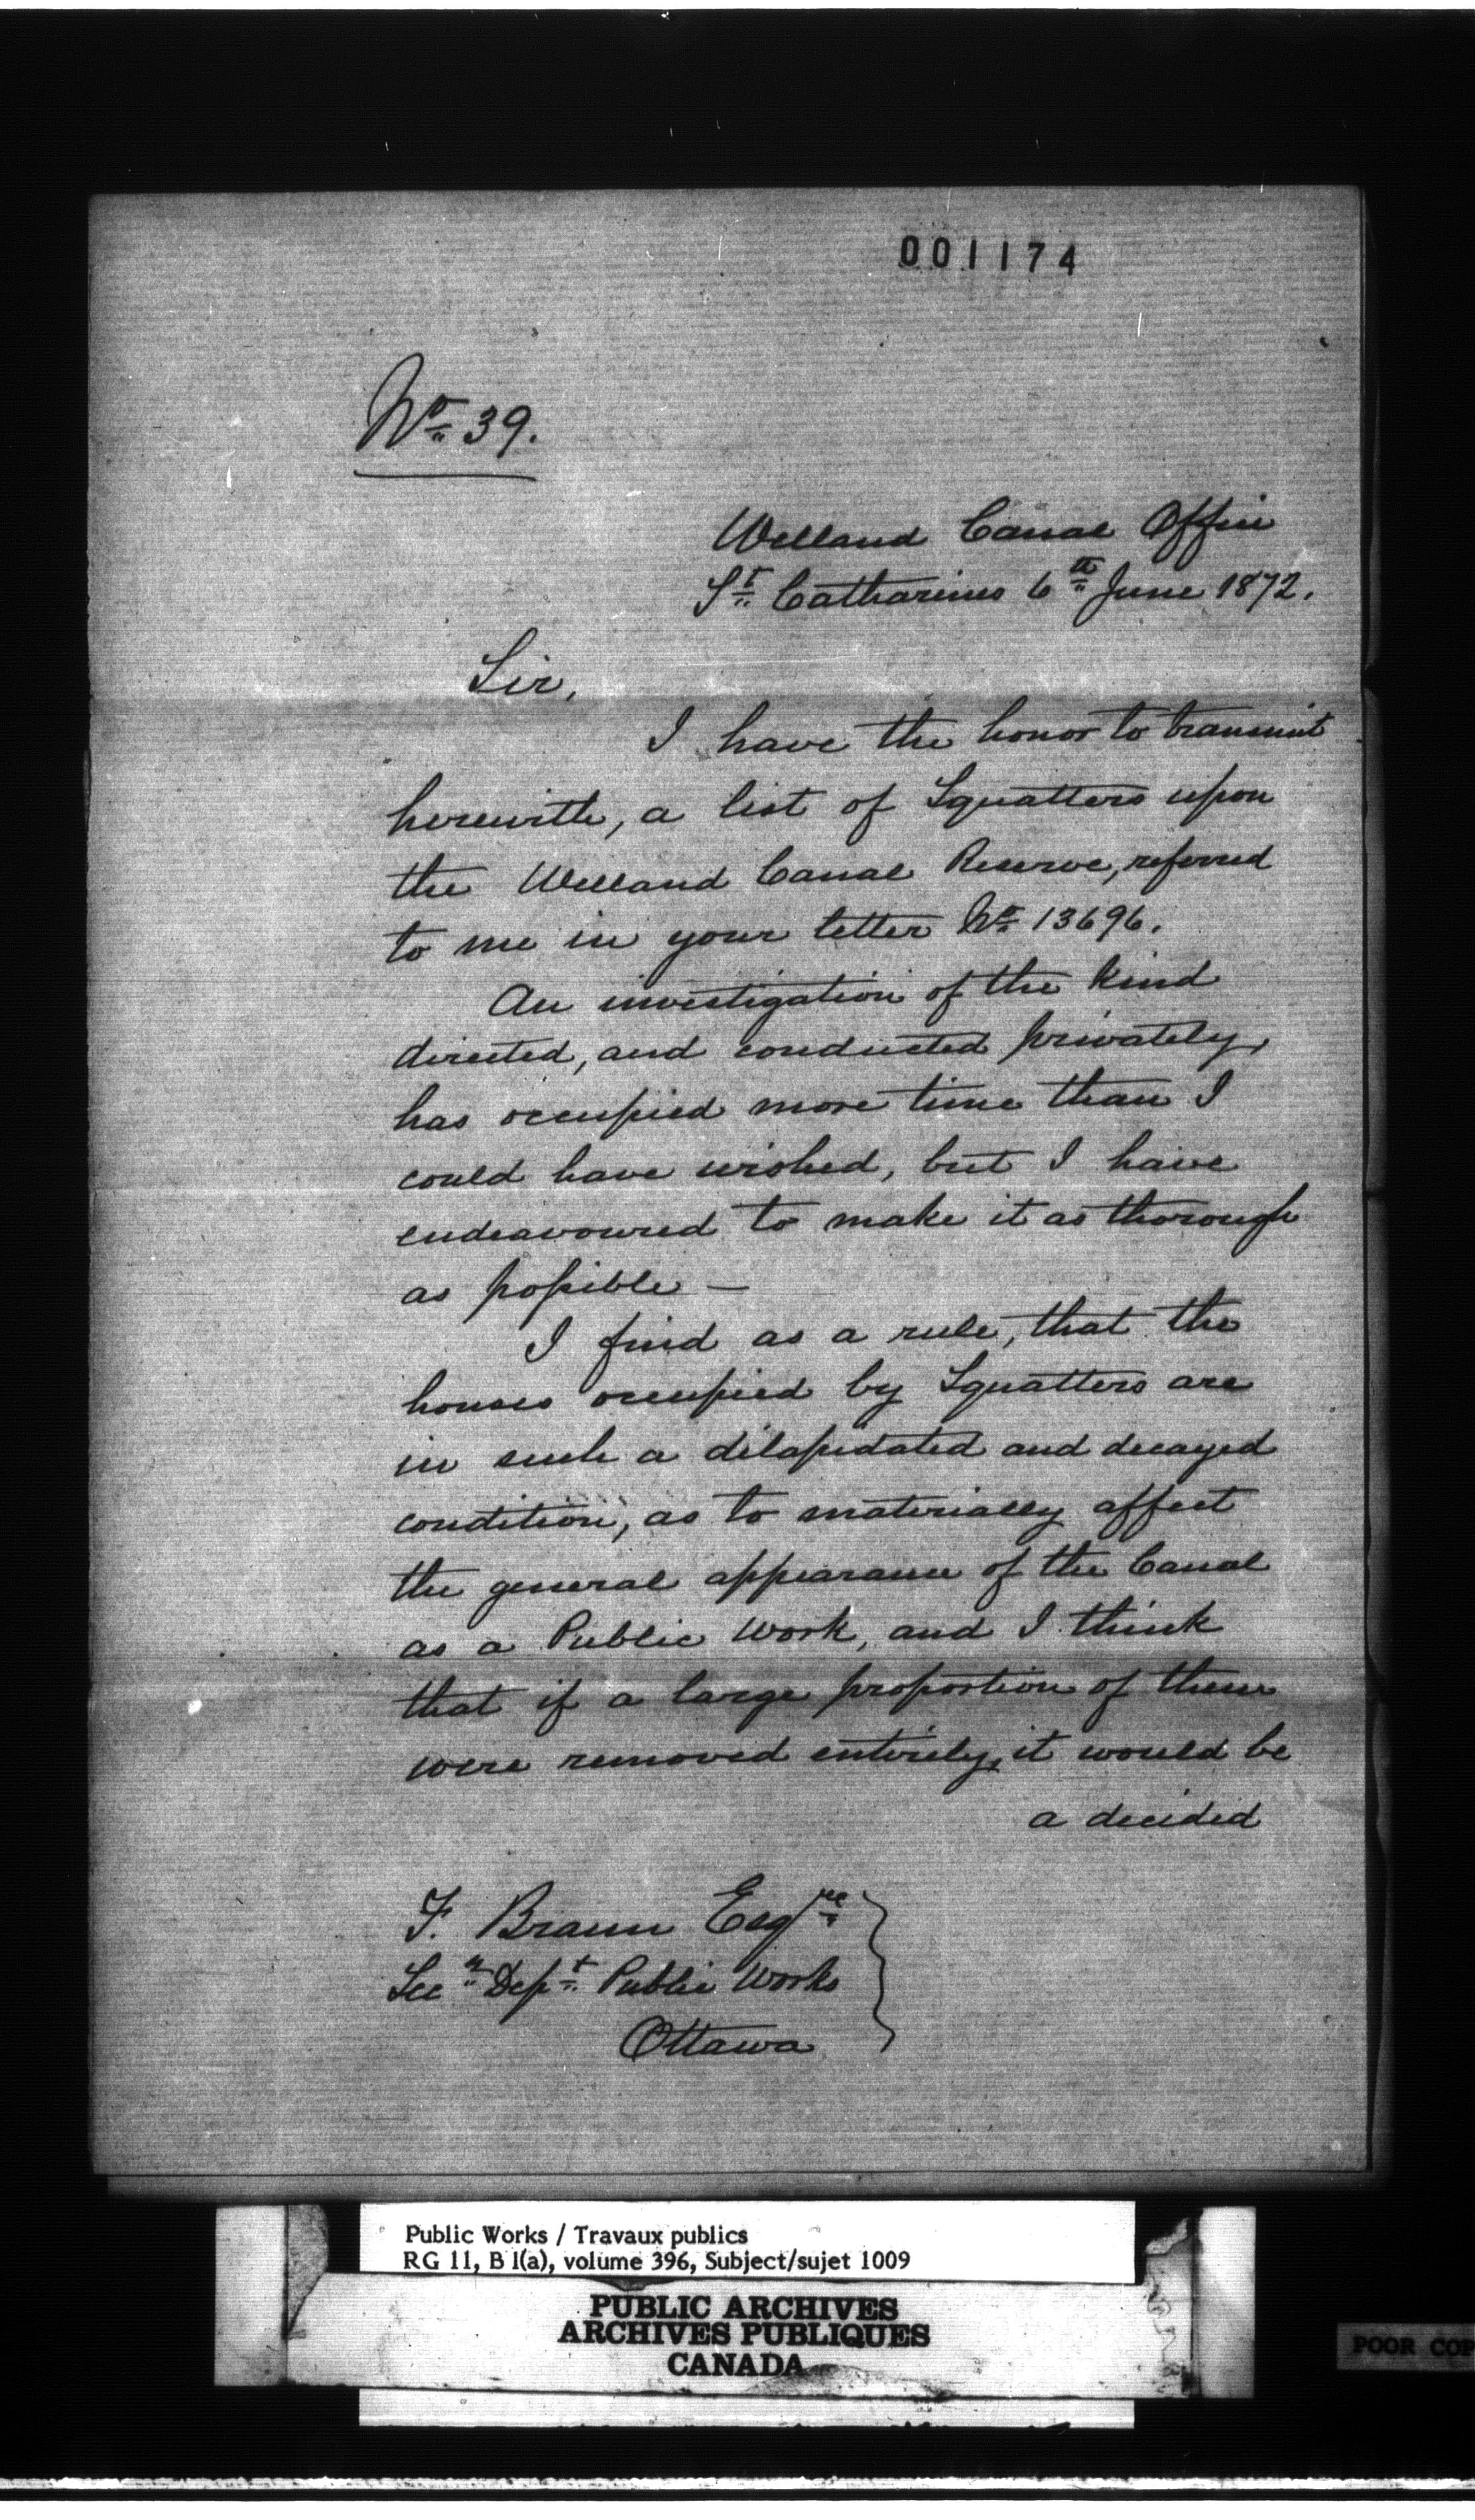 001174
No 39.
Welland Canal Office
St Catharines 6th June 1872.
Sir,
I have the honor to transmit
herewith, a list of Squatters upon
the Welland Canal Reserve, referred
to me in your letter No 13696.
An investigation of the kind
directed, and conducted privately,
has occupied more time than I
could have wished, but I have
endeavoured to make it as thorough
as possible —
I find as a rule, that the
houses occupied by Squatters are
in such a dilapidated and decayed
condition, as to materially affect
the general appearance of the Canal
as a Public Work, and I think
that if a large proportion of them
were removed entirely, it would be
a decided
F. Braun Esqre
Secy Dept Public Works
Ottawa
Public Works / Travaux publics
RG 11, B 1(a), volume 396, Subject/sujet 1009
PUBLIC ARCHIVES
ARCHIVES PUBLIQUES
CANADA
POOR COP